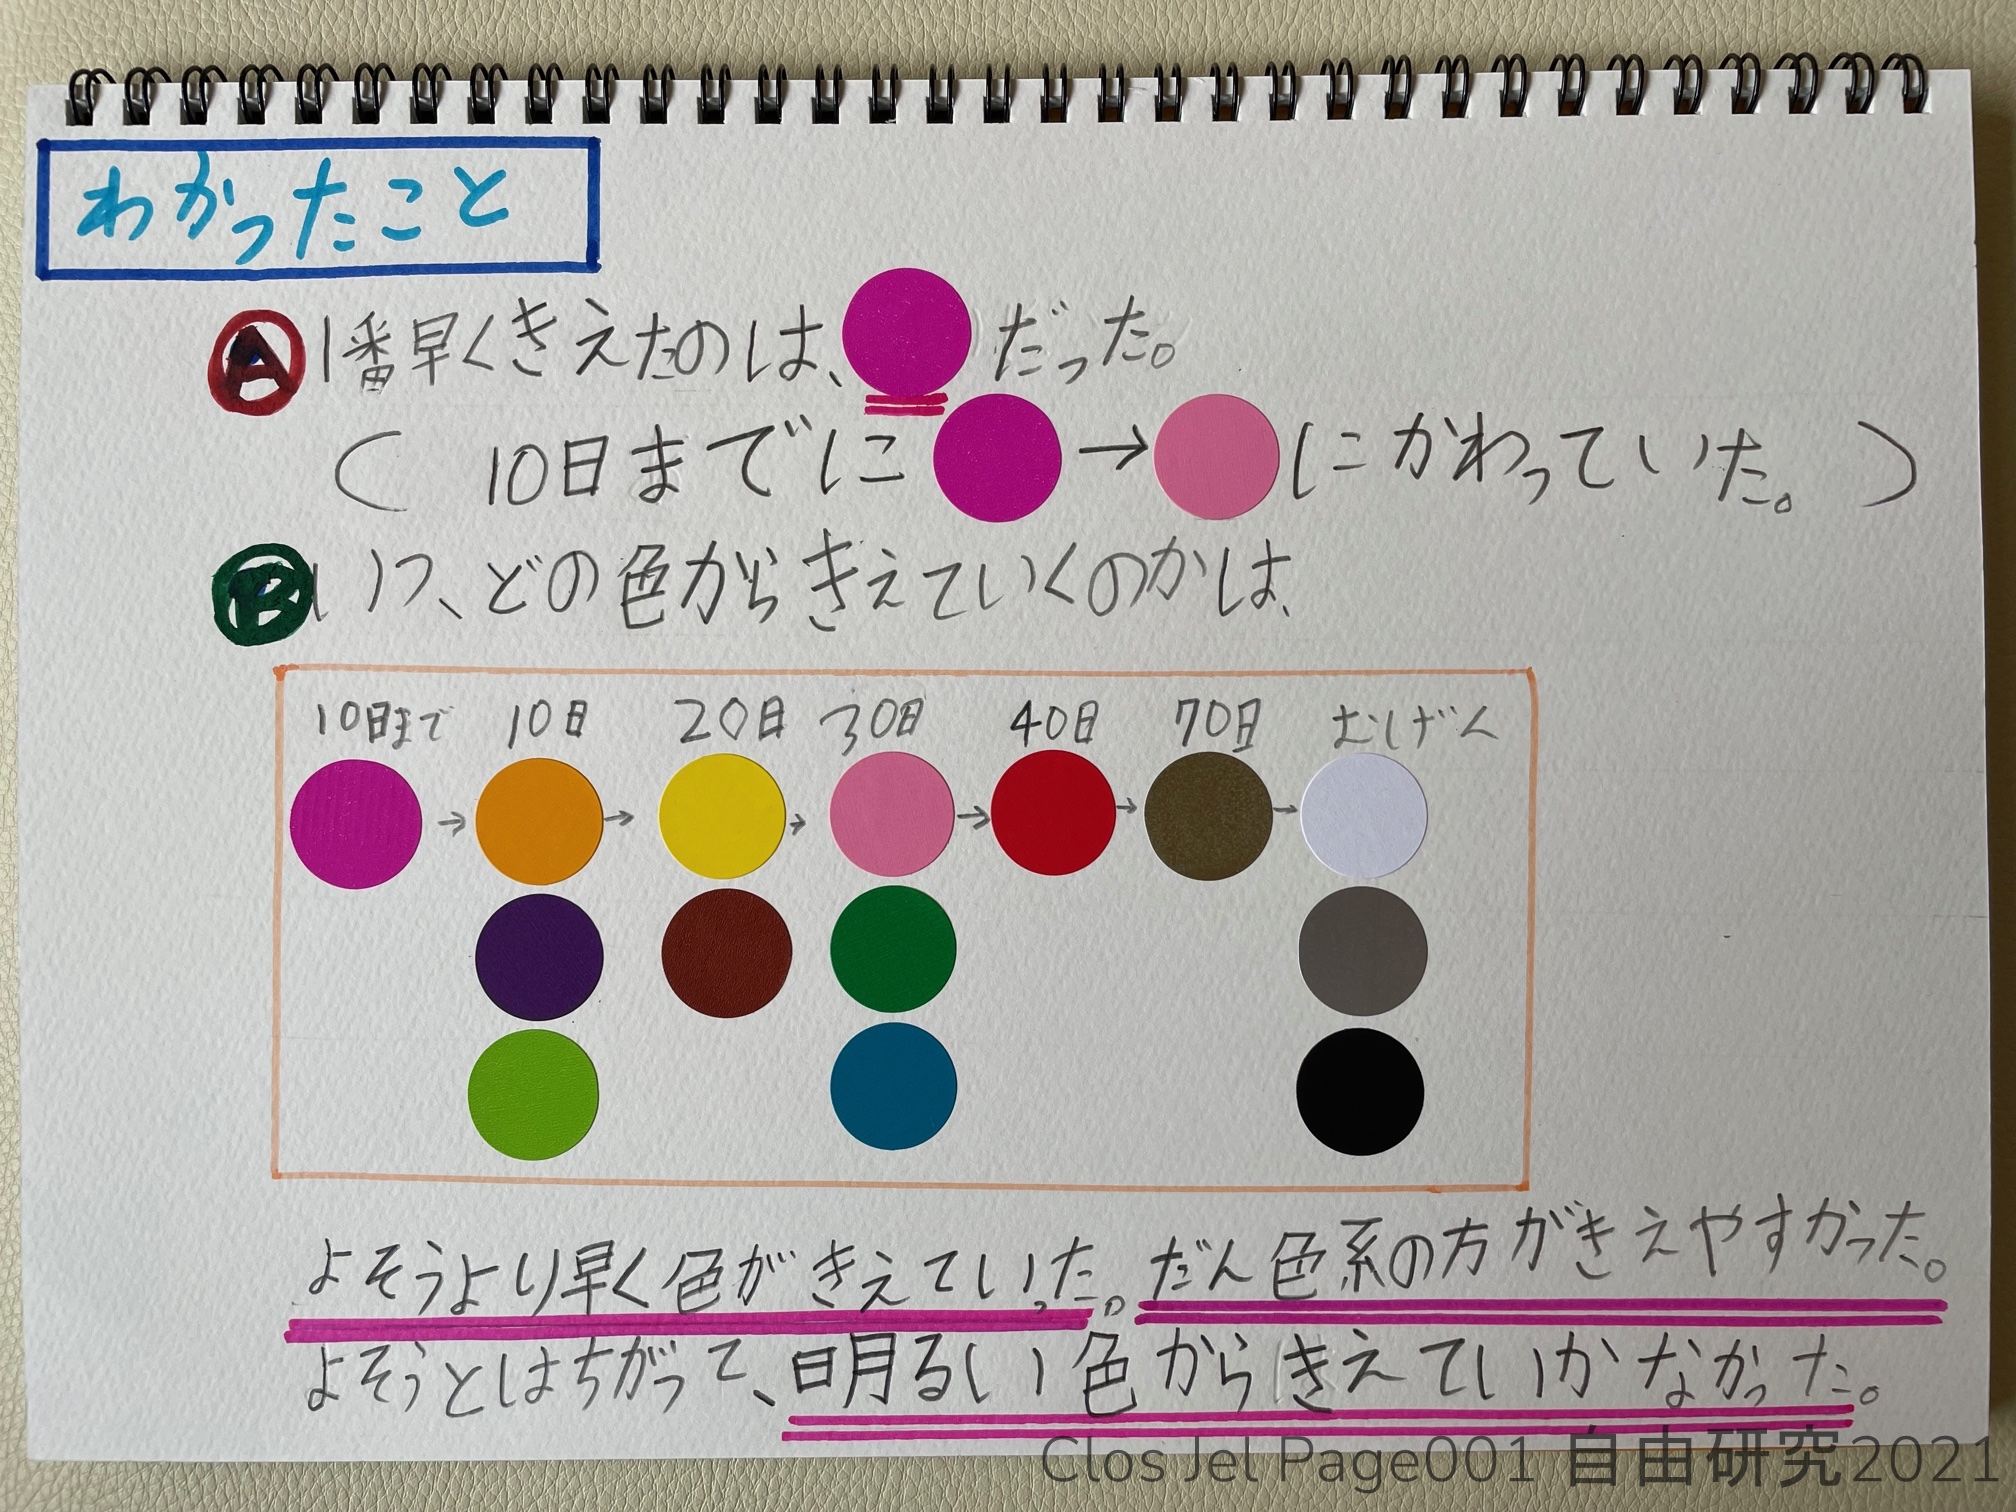 わかったこと
A 1番早くきえたのは、だった。
(10日までに→にかわっていた。)
B いつ、どの色からきえていくのかは、
10日まで 10日 20日 30日 40日 70日 むげん
→ → → → → →
よそうより早く色がきえていった。だん色系の方がきえやすかった。
よそうとはちがって、明るい色からきえていかなかった。
Clos Jel Page001 自由研究2021